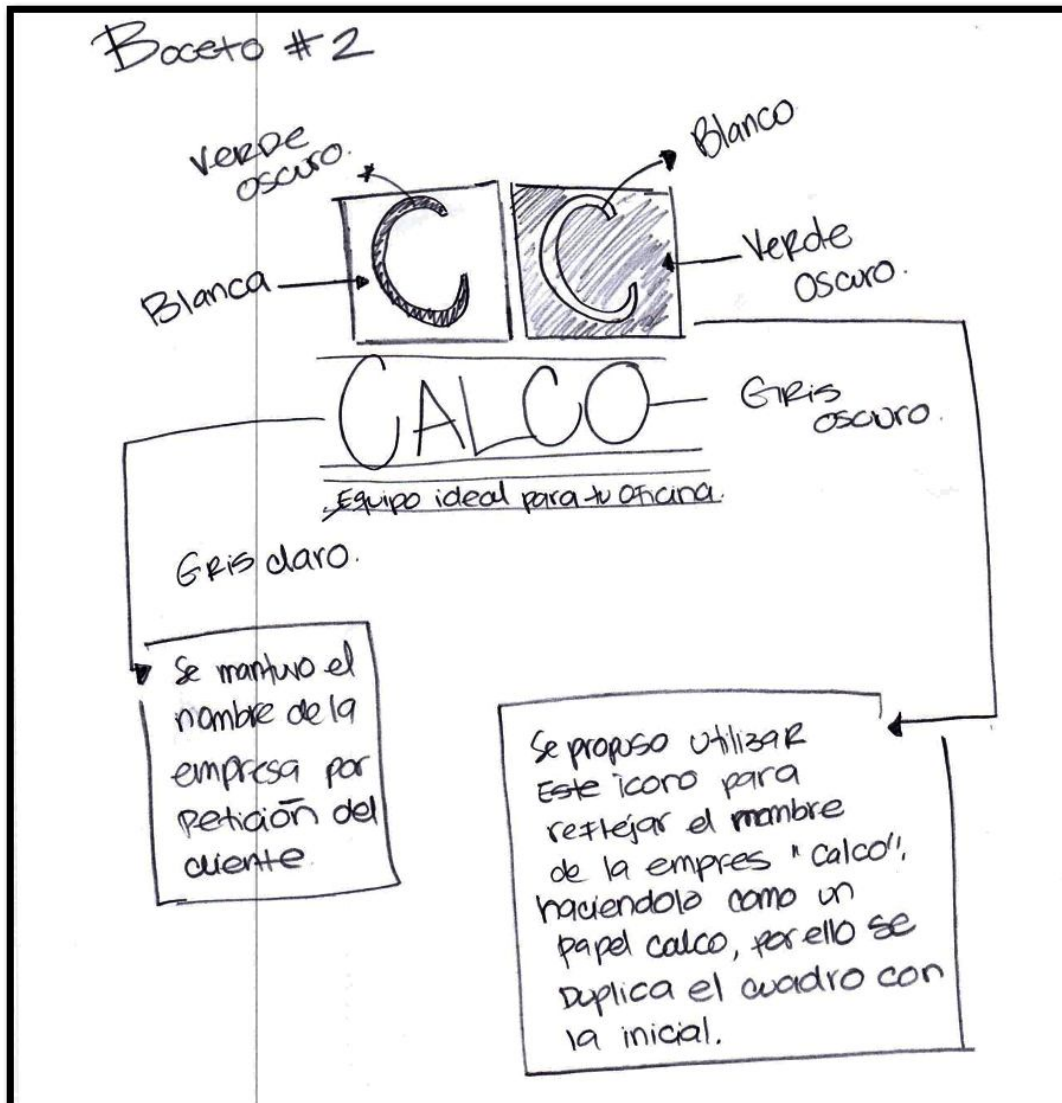 Boceto #2
Verde
oscuro.
Blanco
C
C
Blanca
Verde
oscuro.
CALCO
Gris
oscuro.
Equipo ideal para tu oficina.
Gris claro.
Se mantuvo el
nombre de la
empresa por
petición del
cliente
Se propuso utilizar
Este icono para
reflejar el mombre
de la empres "Calco",
haciendolo como un
papel calco, por ello se
Duplica el cuadro con
la inicial.